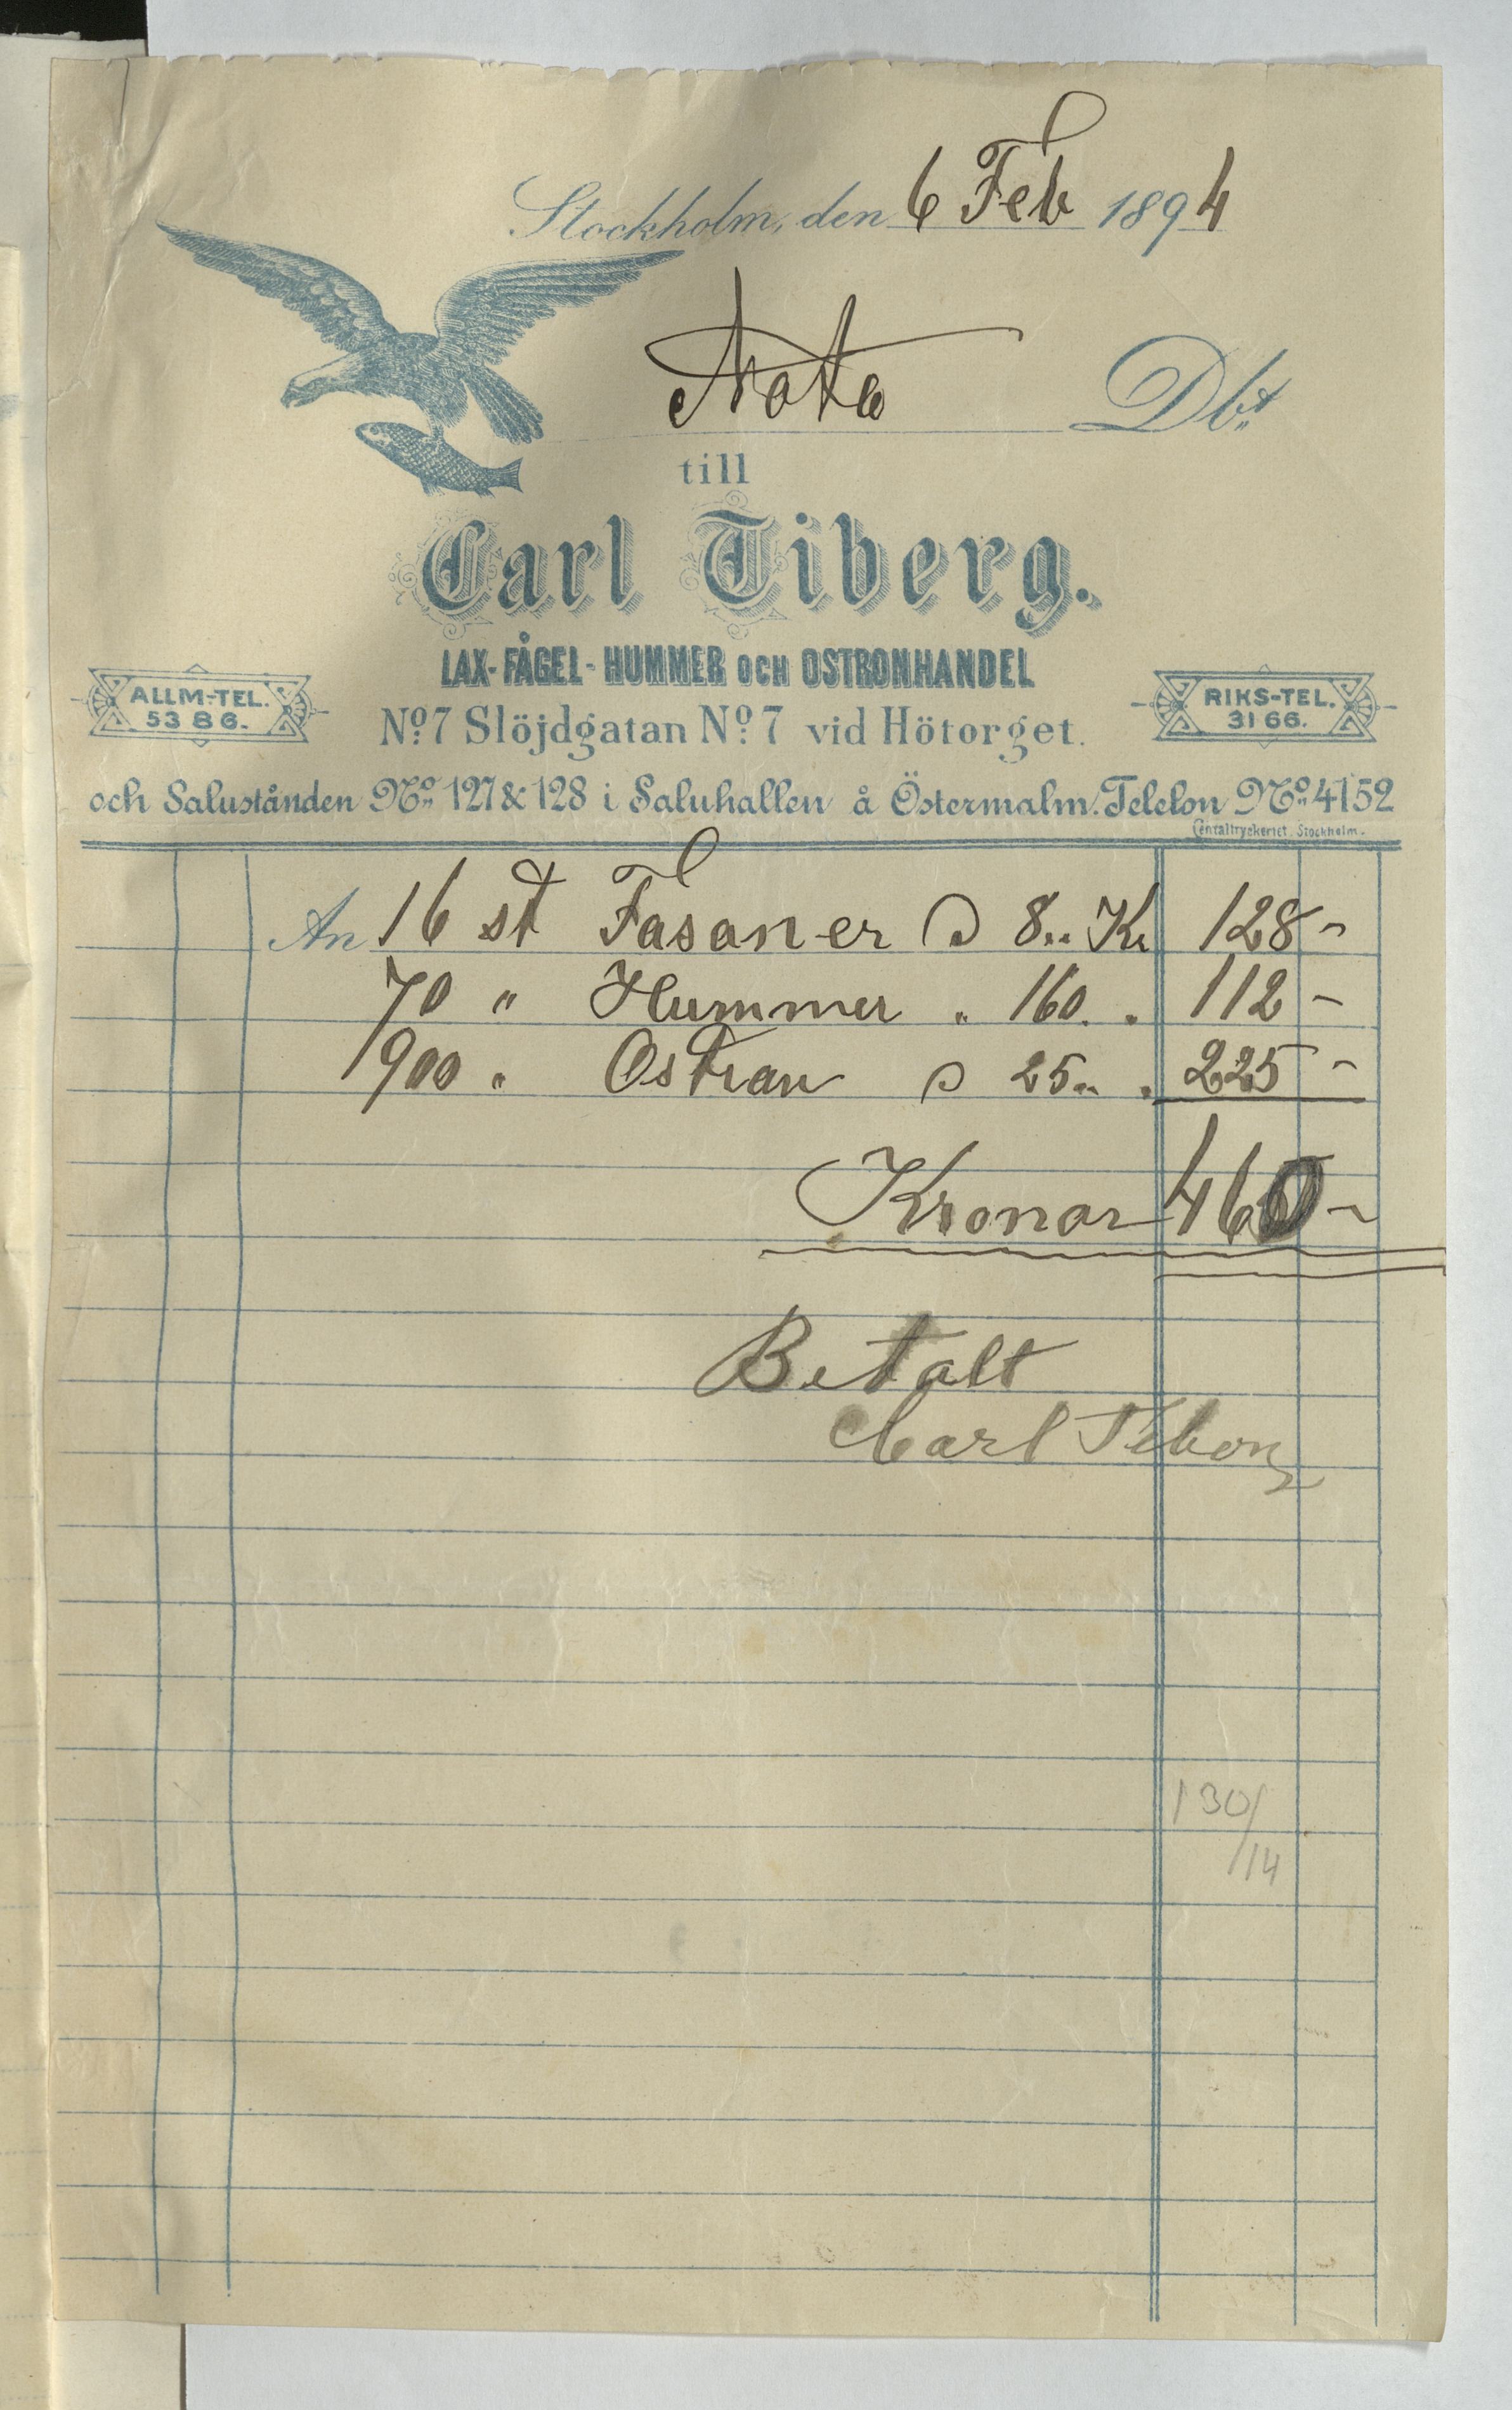 Stockholm, den 6 Feb 1894
Nota Dbt
till
Carl Tiberg.
LAX-FÅGEL-HUMMER OCH OSTRONHANDEL
ALLM-TEL. 5386.
RIKS-TEL. 3166.
No. 7 Slöjdgatan No. 7 vid Hötorget.
och Salustånden No. 127 & 128 i Saluhallen å Östermalm. Telefon No. 4152
Centaltryckeriet. Stockholm.
An 16 st Fasaner à 8.. Kr 128 -
70 " Hummer " 160. " 112 -
900 " Ostron à 25.. " 225 -
Kronor 460 -
Betalt
Carl Tiberg
130/14